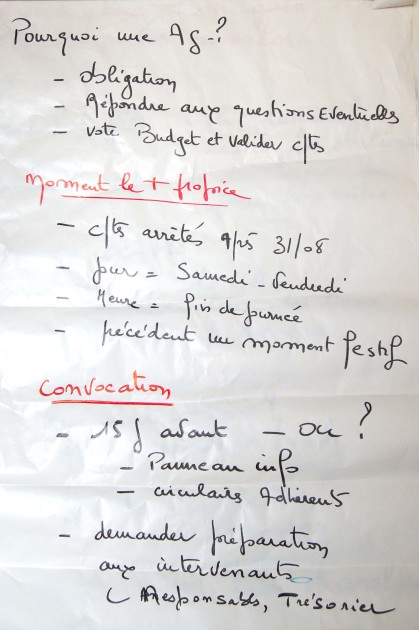 Pourquoi une AG-?
- obligation
- Répondre aux questions Eventuelles
- vote Budget et valider c/ts
Moment le + propice
- c/ts arrêtés après 31/08
- jour = Samedi - Vendredi
- Heure = fin de journée
- précédent un moment festif
Convocation
- 15 j avant - Où ?
- Panneau info
- circulaires Adhérents
- demander préparation
aux intervenants
( Responsables, Trésorier